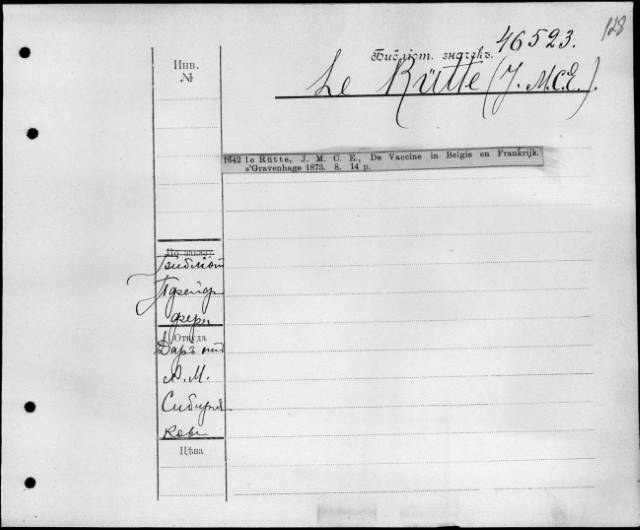 128
Библіот. значекъ. 46523.
Le Rütte (J. M.C.E.).
Инв.
№
1642 le Rütte, J. M. C. E., De Vaccine in Belgie en Frankrijk.
s'Gravenhage 1873. 8. 14 p.
По заказу
Библіот
Пфейф
фера
Откуда
Даръ отъ
А. М.
Сибиря
кова
Цѣна